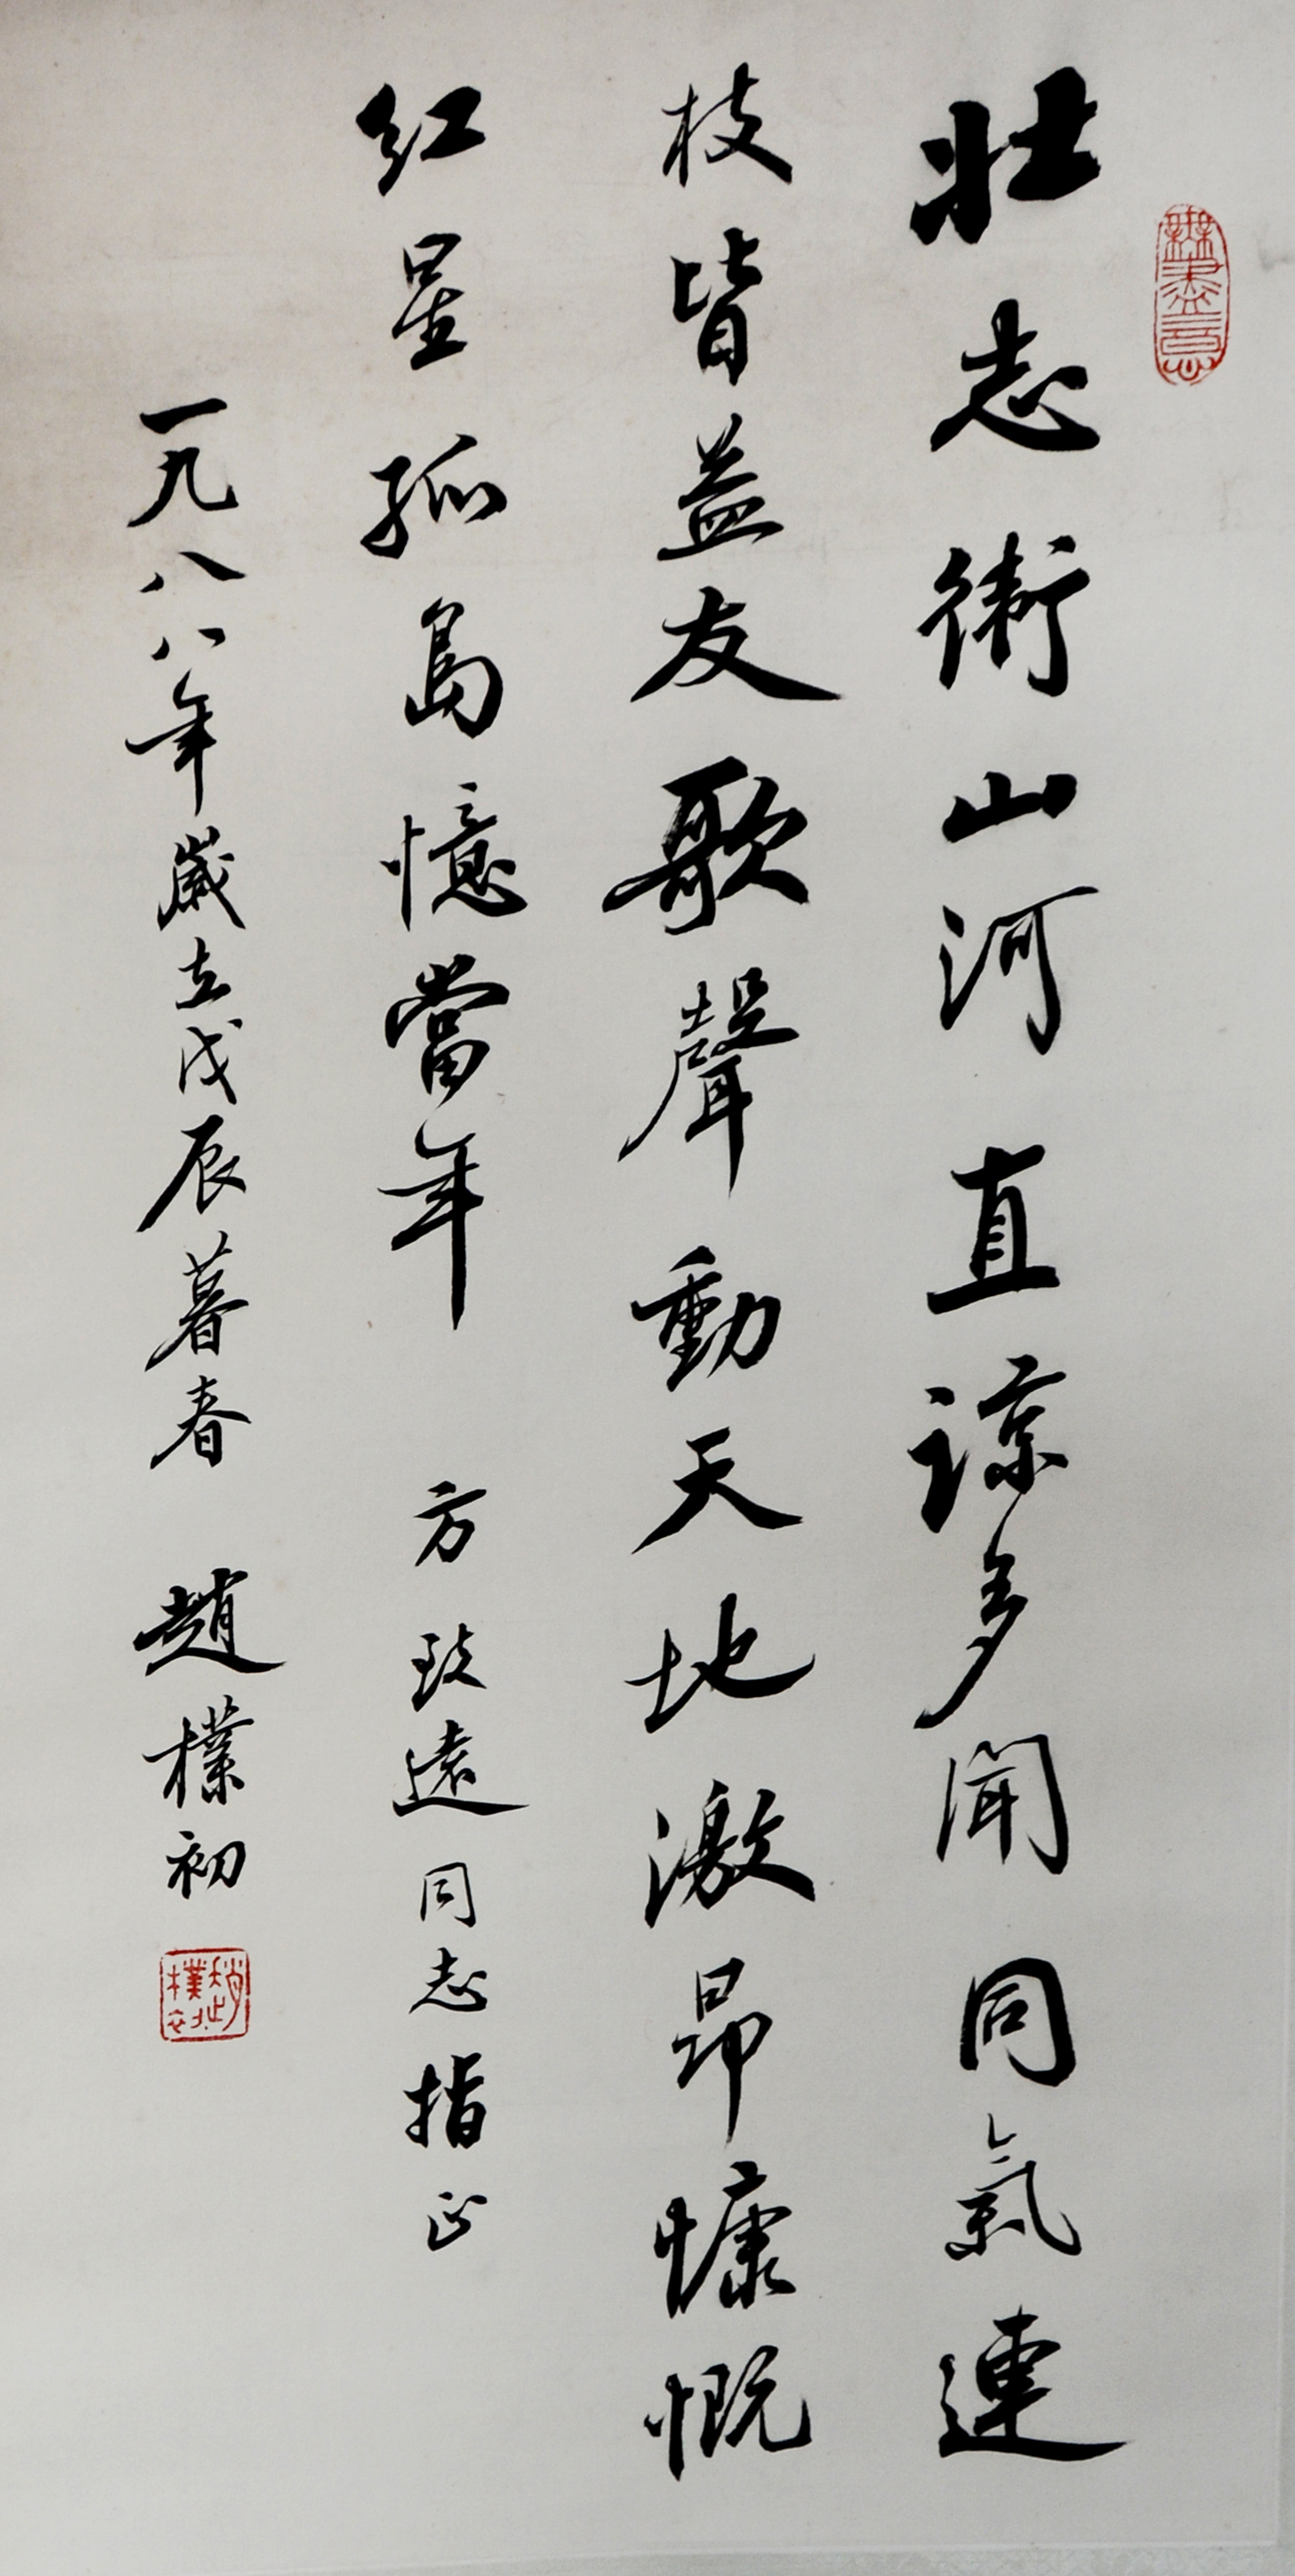 壯志衛山河直諒多聞同氣連
枝皆益友歌聲動天地激昂慷慨
红星孤島憶當年 方致遠同志指正
一九八八年歲在戊辰暮春 趙樸初
無盡意
趙樸初